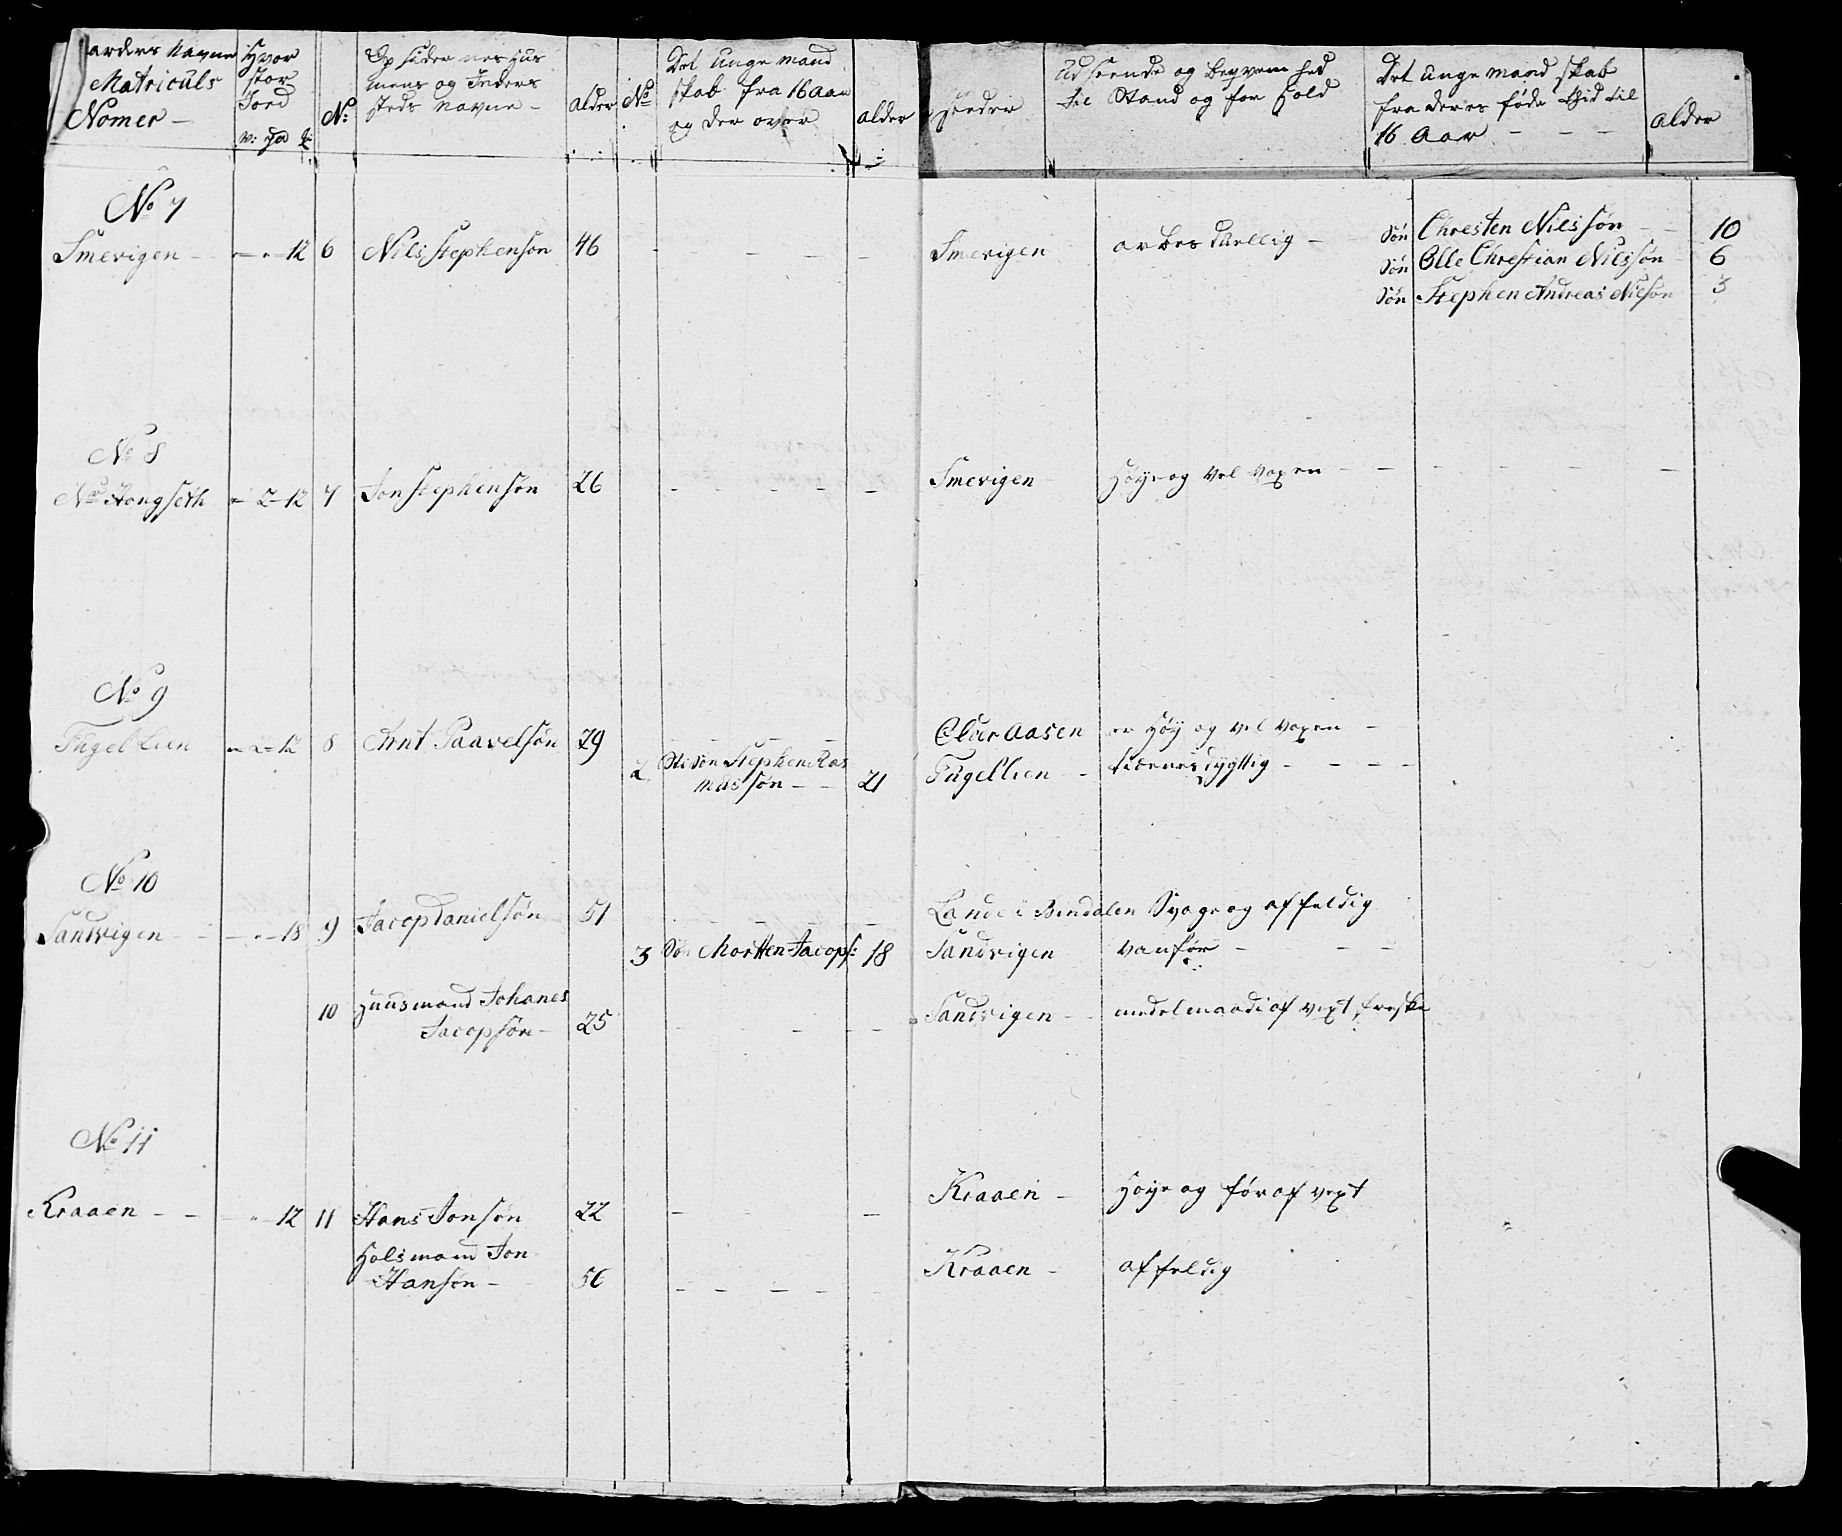 arders Navne
Matriculs
Nomer –
Hvor
stor
Jord
v: pd
No:
Op sider nes Hus
mens og Inders
steds Navne –
alder
No
Det unge mand
skab fra 16 aar
og der over
alder
Udseende og beqvem hed
til Stand og for hold
Det unge mand skab
fra deres føde tid til
16 Aar – – –
alder
No 7
Smevigen – – – " – 12 6 Nils Stephensøn 46 – – – – – Smevigen arbes duellig – Søn Chresten Nilssøn – 10
Søn Olle Christian Nilssøn 6
Søn Stephen Andreas Nilsøn 3
No 8
Nor Hongseth – 2 – 12 7 Jon Stephensøn 26 – – – – – Smevigen Høye og vel voxen – – – – – –
No 9
Fugellien – 2 – 12 8 Arnt Paavelsøn 29 – – – – aasen er Høy og vel voxen –
2 Sti søn Stephen Ras
mussøn – – 21 Fugellien – dygttig – – – –
No 10
Sandvigen – – " – 18 9 Jacop Danielsøn 51 – – – – – Lande i Bendalen Svage og affeldig
3 Søn Mortten Jacops: 18 Sandvigen vanfør – – –
10 Huusmand Johanes
Jacopsøn – 25 – – – – Sandvigen – – medelmaadi af vext, freske
No 11
Kraaen – – – " – 12 11 Hans Jonsøn 22 – – – Kraaen – Høye og før af vext
Holsmand Jon
Hansøn – 56 – – – – Kraaen – affeldig